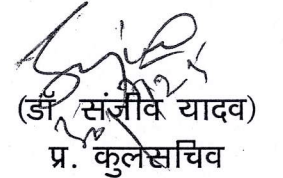 (डॉ संजीव यादव)
प्र. कुलसचिव